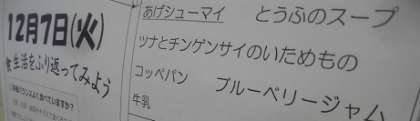 12月7日(火)
食生活をふり返ってみよう
あげシューマイ　とうふのスープ
ツナとチンゲンサイのいためもの
コッペパン　ブルーベリージャム
牛乳